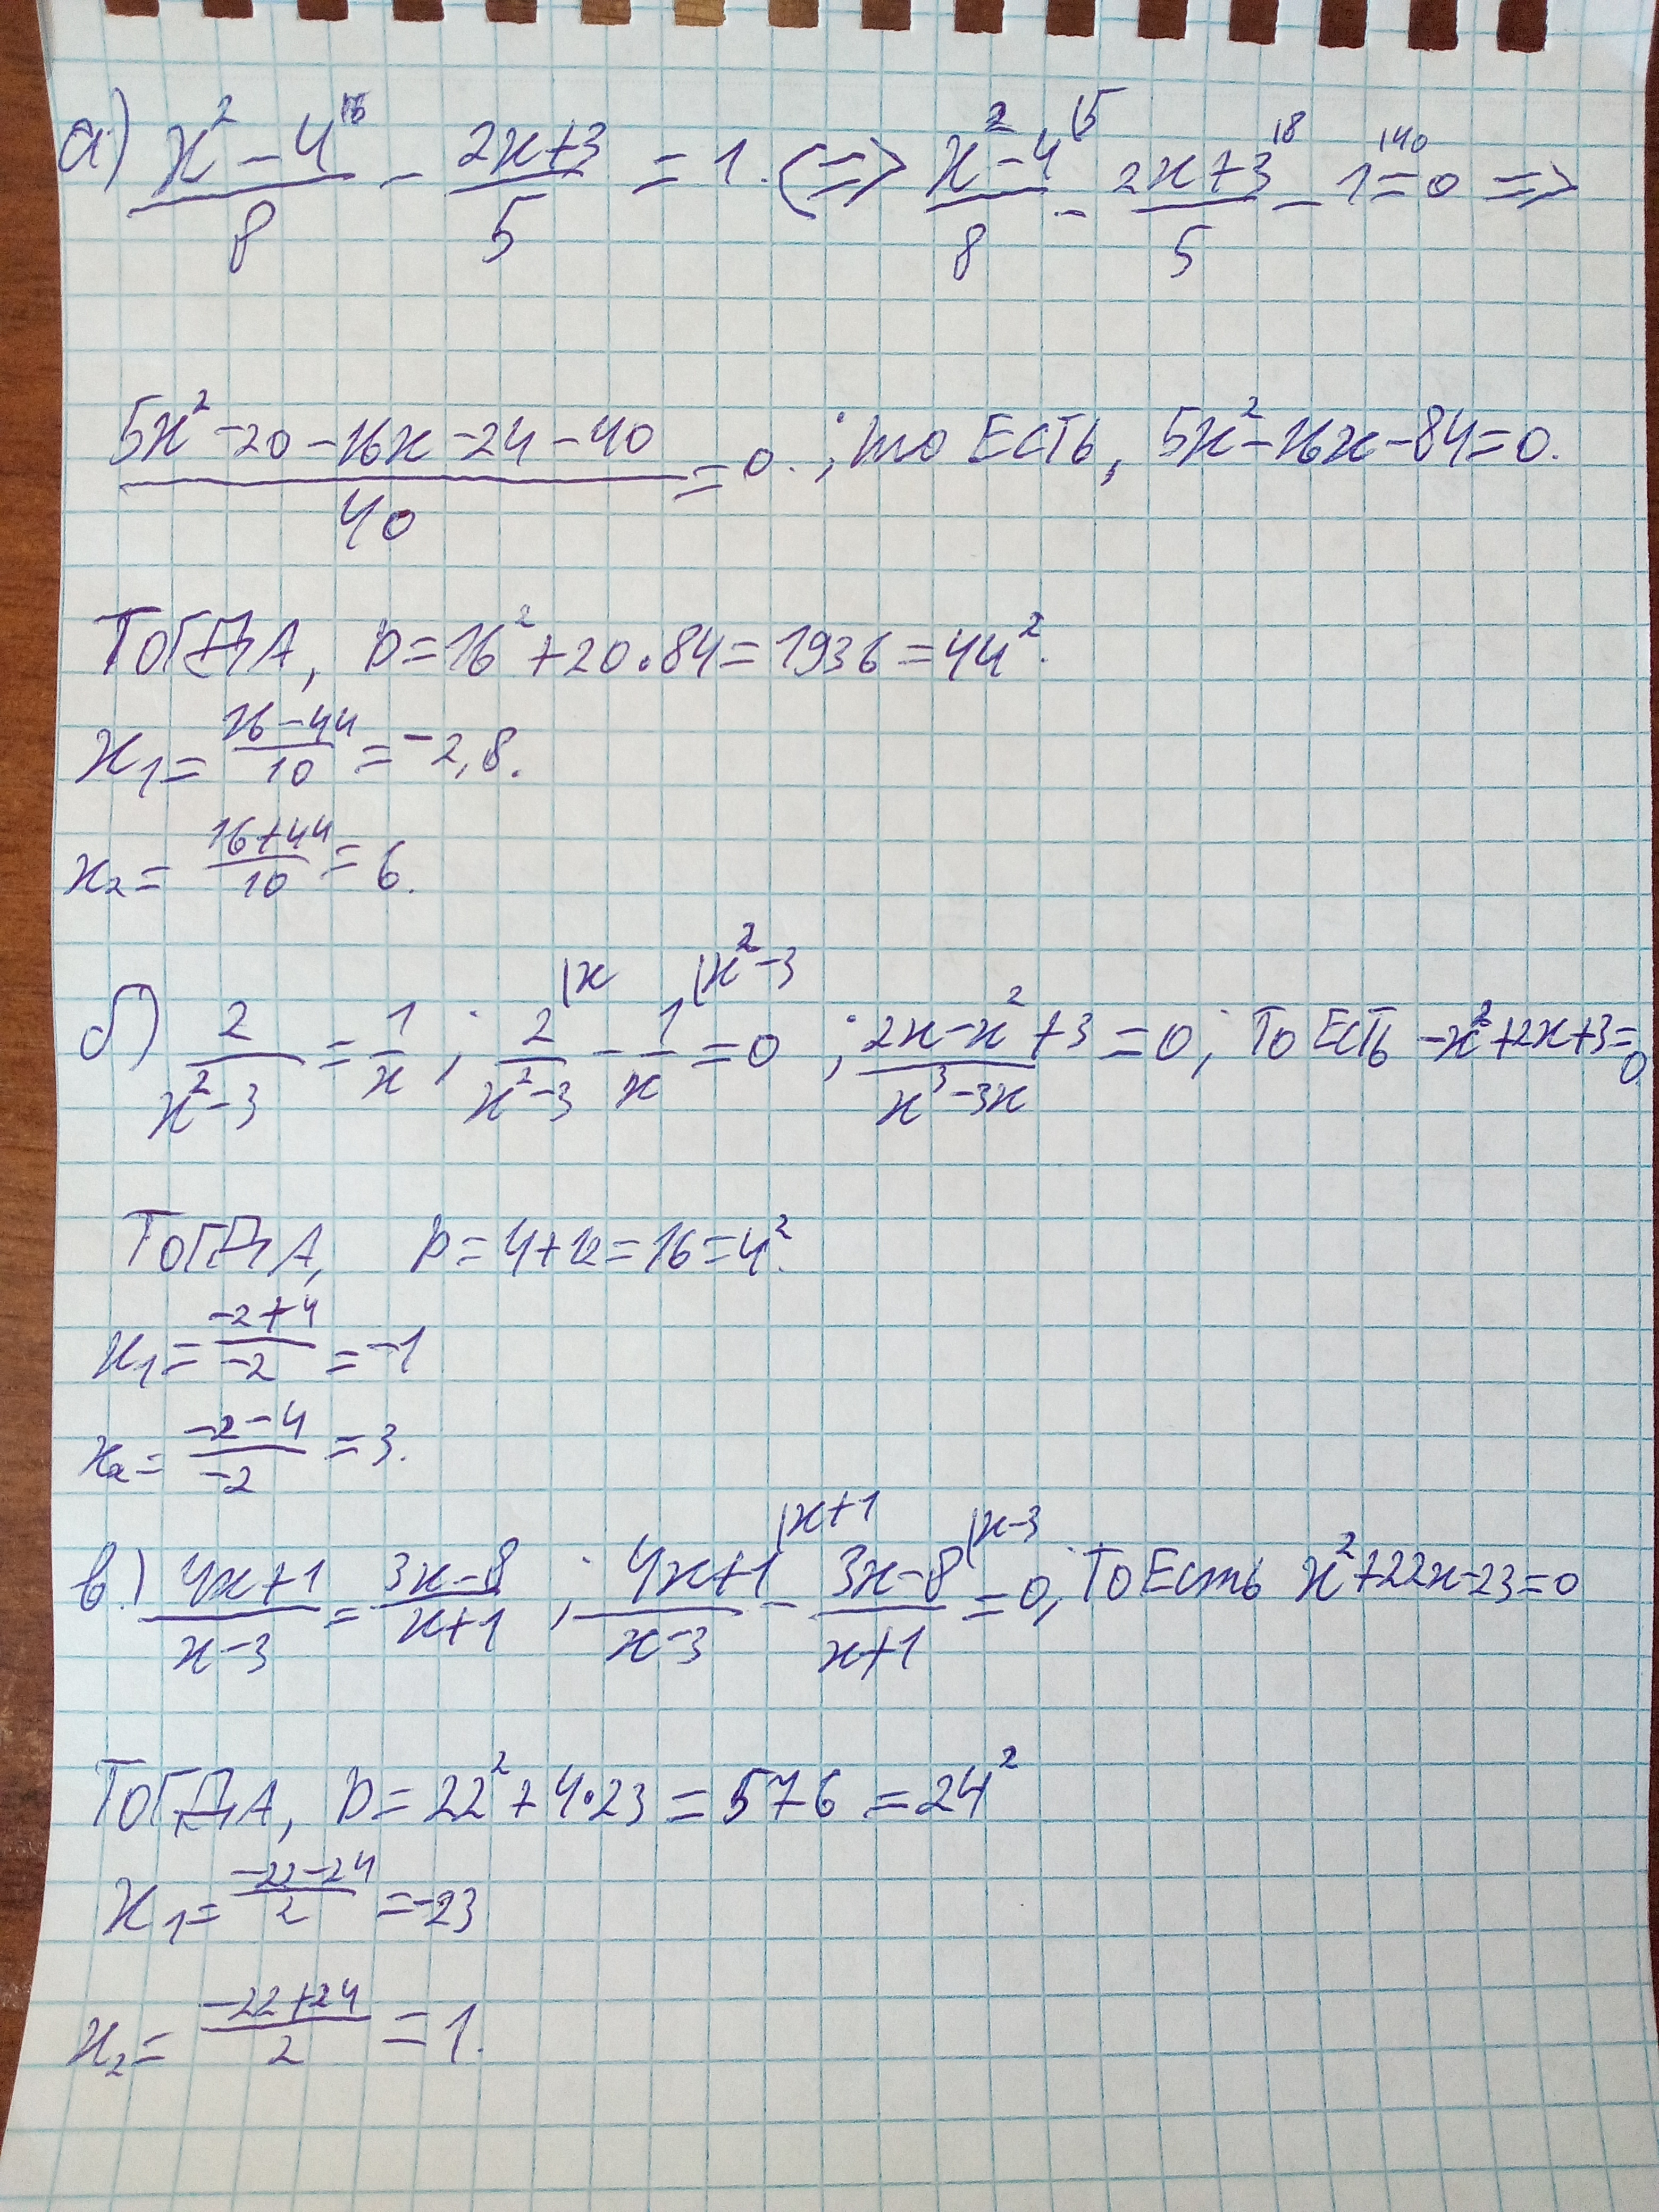 а) (x² - 4)/8 - (2x+3)/5 = 1. (=> (x² - 4 |5)/8 - (2x+3 |8)/5 - 1 |40 = 0 =>
(5x² - 20 - 16x - 24 - 40)/40 = 0. ; то ЕСТЬ, 5x² - 16x - 84 = 0.
ТОГДА, D = 16² + 20·84 = 1936 = 44².
x₁ = (16 - 44)/10 = -2,8.
x₂ = (16+44)/10 = 6.
б) 2/(x² - 3) = 1/x ; 2 |x/(x² - 3) - 1 |x² - 3/x = 0 ; (2x - x² + 3)/(x³ - 3x) = 0 ; ТО ЕСТЬ -x² + 2x + 3 = 0
ТОГДА, D = 4 + 12 = 16 = 4².
x₁ = (-2+4)/(-2) = -1
x₂ = (-2 - 4)/(-2) = 3.
в.) (4x+1)/(x-3) = (3x-8)/(x+1) ; (4x+1 |x+1)/(x-3) - (3x-8 |x-3)/(x+1) = 0 ; ТО Есть x² + 22x - 23 = 0
ТОГДА, D = 22² + 4·23 = 576 = 24²
x₁ = (-22 - 24)/2 = -23
x₂ = (-22+24)/2 = 1.